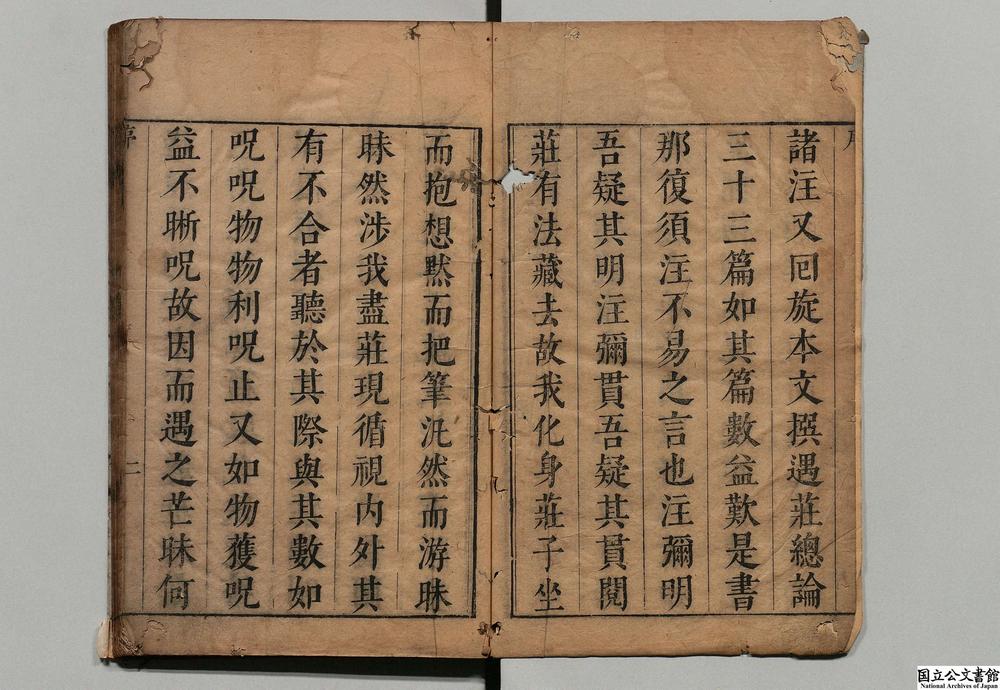 諸注又囘旋本文撰遇莊總論
三十三篇如其篇數益歎是書
那復須注不易之言也注彌明
吾疑其明注彌貫吾疑其貫閱
莊有法藏去故我化身莊子坐
而抱想默而把筆汎然而游昧
昧然涉我盡莊現循視内外其
有不合者聽於其際與其數如
呪呪物物利呪止又如物獲呪
益不晰呪故因而遇之芒昧何
二
国立公文書館
National Archives of Japan